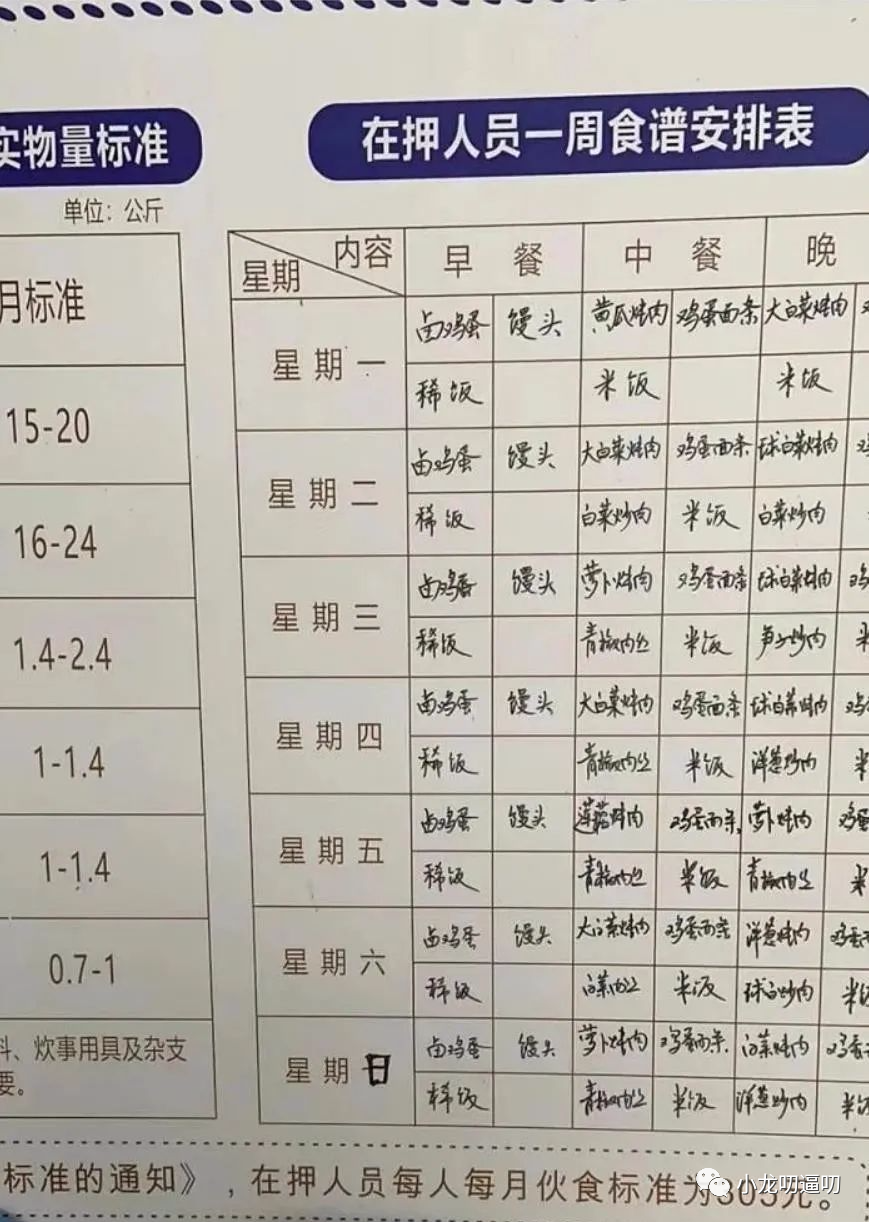 实物量标准
单位：公斤
月标准
15-20
16-24
1.4-2.4
1-1.4
1-1.4
0.7-1
料、炊事用具及杂支
要。
在押人员一周食谱安排表
内容 星期 早餐 中餐 晚
星期一 卤鸡蛋 馒头 黄瓜炖肉 鸡蛋面条 大白菜炖肉
稀饭 米饭 米饭
星期二 卤鸡蛋 馒头 大白菜炖肉 鸡蛋面条 球白菜炖肉
稀饭 白菜炒肉 米饭 白菜炒肉
星期三 卤鸡蛋 馒头 萝卜炖肉 鸡蛋面条 球白菜炖肉 鸡
稀饭 青椒肉丝 米饭 笋子炒肉 米
星期四 卤鸡蛋 馒头 大白菜炖肉 鸡蛋面条 球白菜炖肉 鸡
稀饭 青椒肉丝 米饭 洋葱炒肉 米
星期五 卤鸡蛋 馒头 炖肉 鸡蛋面条 萝卜炖肉 鸡蛋
稀饭 青椒肉丝 米饭 青椒肉丝 米
星期六 卤鸡蛋 馒头 大白菜炖肉 鸡蛋面条 洋葱炖肉 鸡蛋面
稀饭 白菜肉丝 米饭 球白炒肉 米饭
星期日 卤鸡蛋 馒头 萝卜炖肉 鸡蛋面条 白菜炖肉 鸡蛋面
稀饭 青椒肉丝 米饭 洋葱炒肉 米饭
标准的通知》，在押人员每人每月伙食标准为305元。
小龙叨逼叨